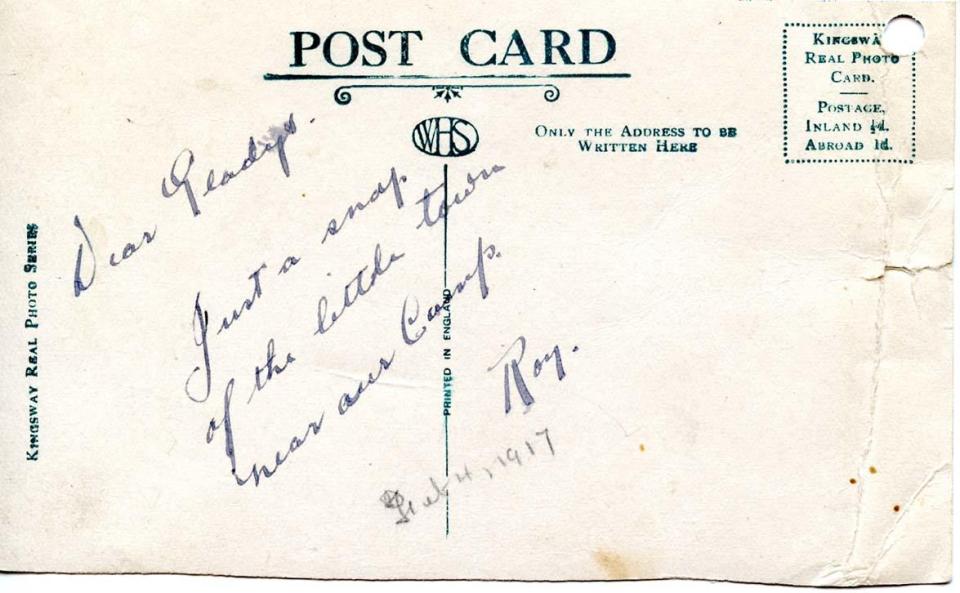 POST CARD
WHS
ONLY THE ADDRESS TO BE
WRITTEN HERE
KINGSWAY
REAL PHOTO
CARD.
POSTAGE,
INLAND ½d.
ABROAD 1d.
KINGSWAY REAL PHOTO SERIES
PRINTED IN ENGLAND
Dear Gladys.
Just a snap
of the little town
near our Camp.
Roy.
Feb 4, 1917